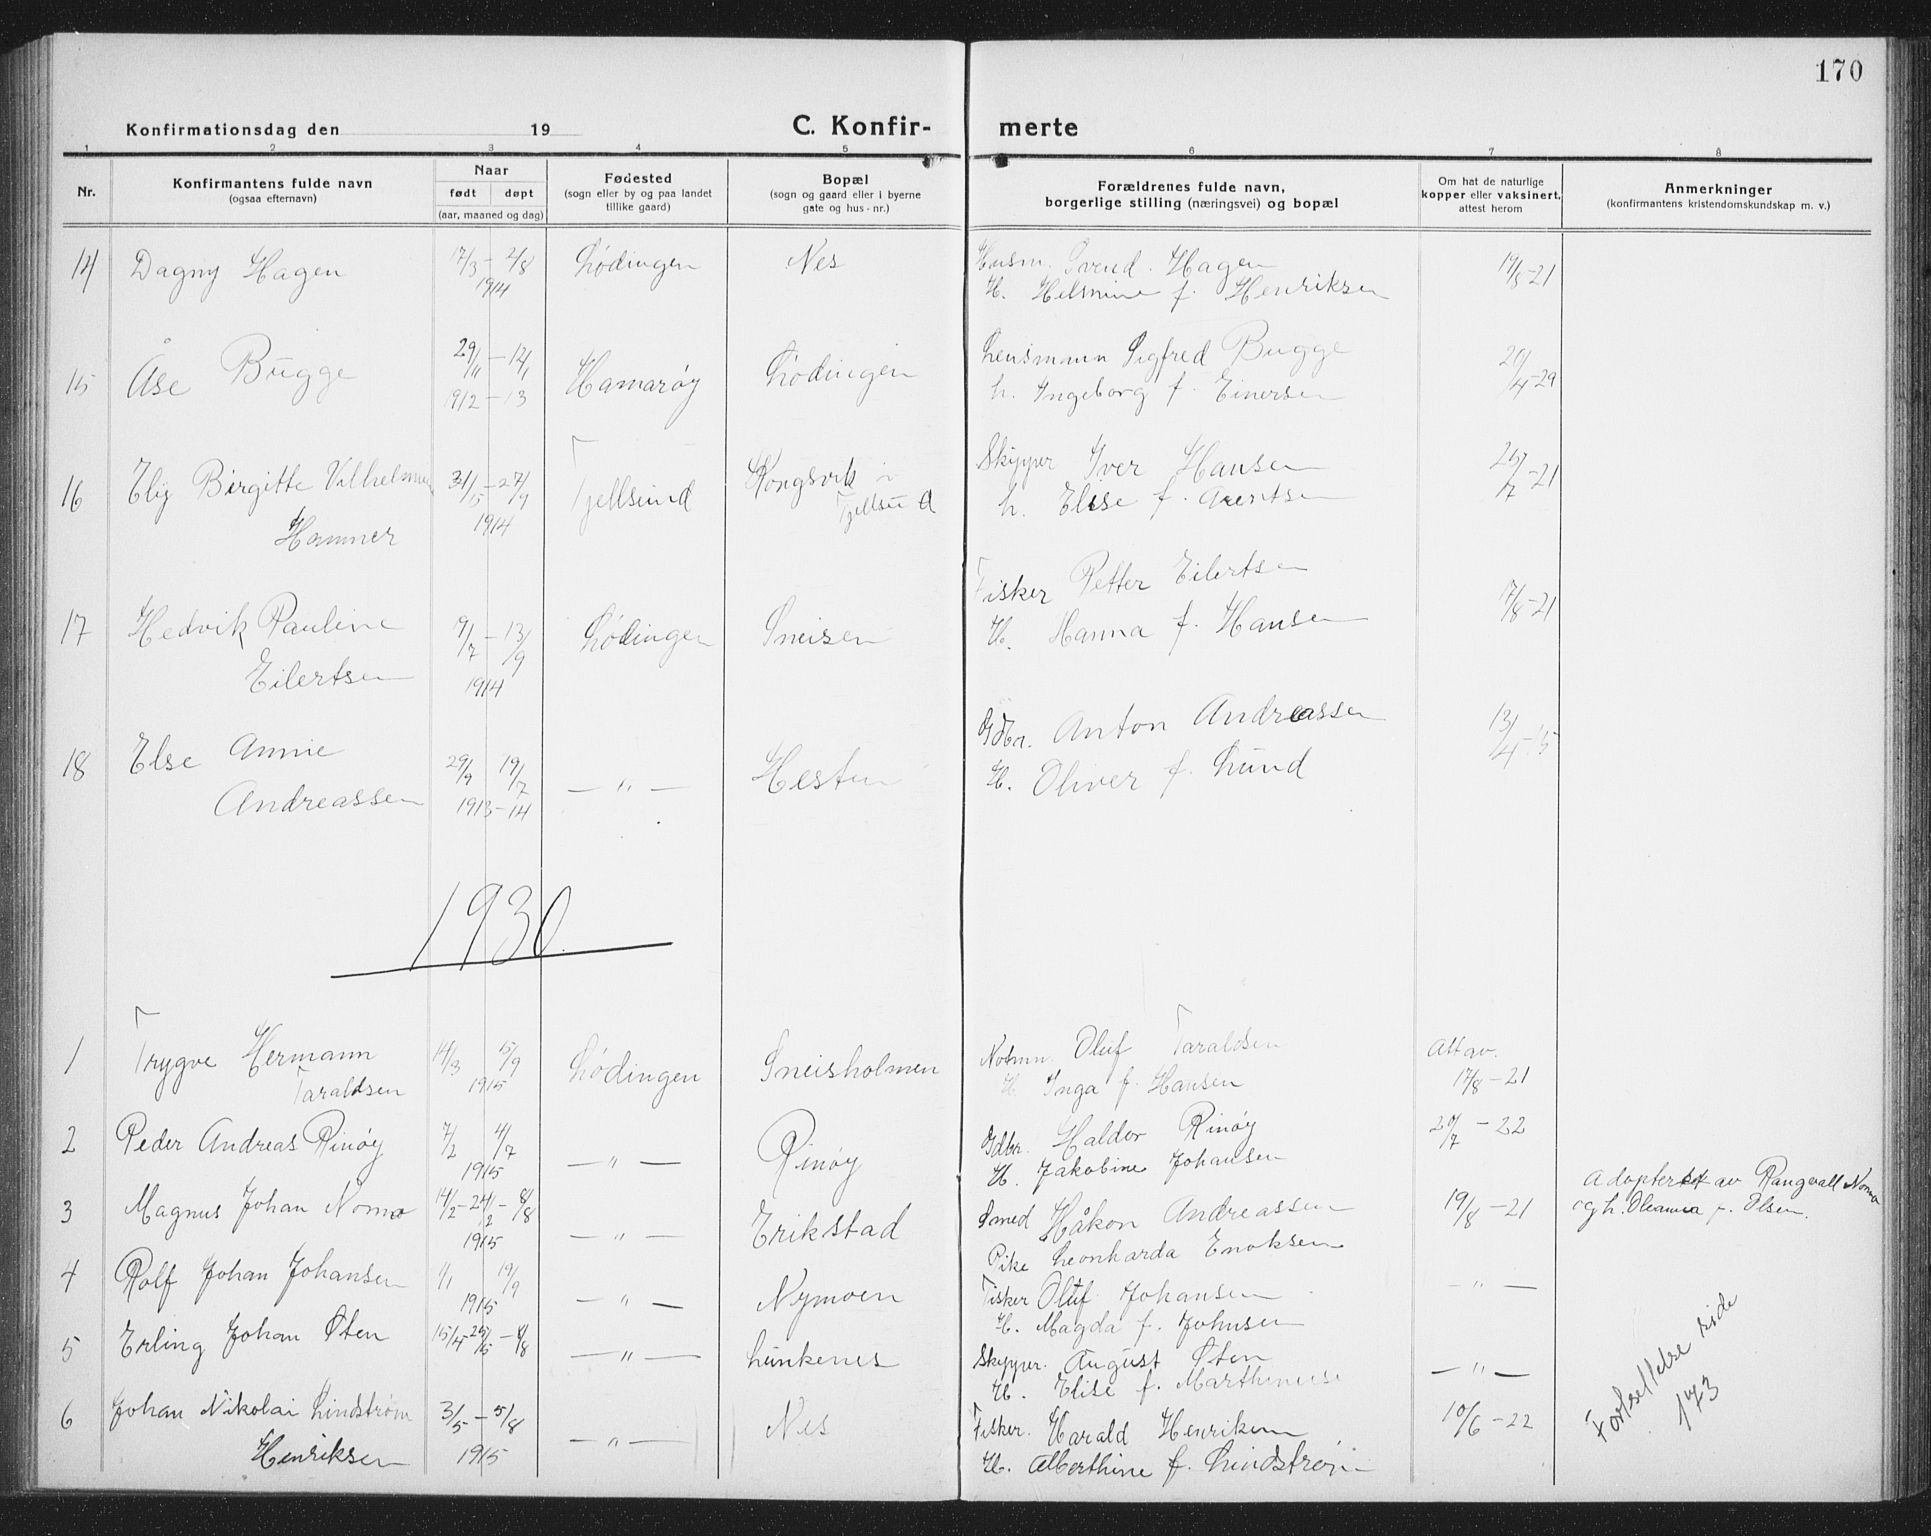 170
Konfirmationsdag den 19
C. Konfir- merte
1 2 3 4 5 6 7 8
Nr.
Konfirmantens fulde navn
(ogsaa efternavn)
Naar
født døpt
(aar, maaned og dag)
Fødested
(sogn eller by og paa landet
tillike gaard)
Bopæl
(sogn og gaard eller i byerne
gate og hus-nr.)
Forældrenes fulde navn,
borgerlige stilling (næringsvei) og bopæl
Om hat de naturlige
kopper eller vaksinert,
attest herom
Anmerkninger
(konfirmantens kristendomskundskap m. v.)
14 Dagny Hagen 17/3 - 2/8 Lødingen Nes Husm. Svend. Hagen 19/8-21
1914 H. Helmine f. Henriksen
15 Åse Bugge 29/11 - 12/1 Hamarøy Lødingen Lensmann Sigfred Bugge 20/4-29
1912 - 13 h. Ingeborg f. Einersen
16 Elly Birgitte Vilhelmine 31/5 - 27/9 Tjellsund Kongsvik i Skipper Iver Hansen 26/7-21
Hammer 1914 Tjellsund h. Elise f. Arentsen
17 Hedvik Pauline 9/7 - 13/9 Lødingen Sneisen Fisker Petter Eilertsen 17/8-21
Eilertsen 1914 H. Hanna f. Hansen
18 Else Annie 29/9 19/7 — " — Hestun Gdbr. Anton Andreassen 13/4-15
Andreassen 1913-14 H. Oliver f. Lund
1930
1 Trygve Hermann 14/3 15/9 Lødingen Sneisholmen Notmn. Oluf Taraldsen Att av.
Taraldsen 1915 H. Inga f. Hansen 17/8-21
2 Peder Andreas Rinøy 7/2 4/7 — " — Rinøy Gdbr. Haldor Rinøy 20/7 - 22
1915 H. Jakobine Johansen
3 Magnus Johan Nomo 14/2-24/2 - 8/8 — " — Erikstad Smed Håkon Andreassen 19/8 - 21 Adoptert av Rangvall Nomo
1915 Pike Leonharda Enoksen og h. Oleanna f. Olsen.
4 Rolf Johan Johansen 1/1 19/9 — " — Nymoen Fisker Oluf Johansen — " —
1915 H. Magda f. Johnsen
5 Erling Johan Øten 15/4 25/5 - 8/8 — " — Lunkenes Skipper. August Øten — " —
H. Elise f.
6 Johan Nikolai Lindstrøm 3/5 - 5/8 — " — Nes Fisker. Harald Henriksen 10/6-22
Henriksen 1915 H. Alberthine f. Lindstrøm
Fortsettelse side
173